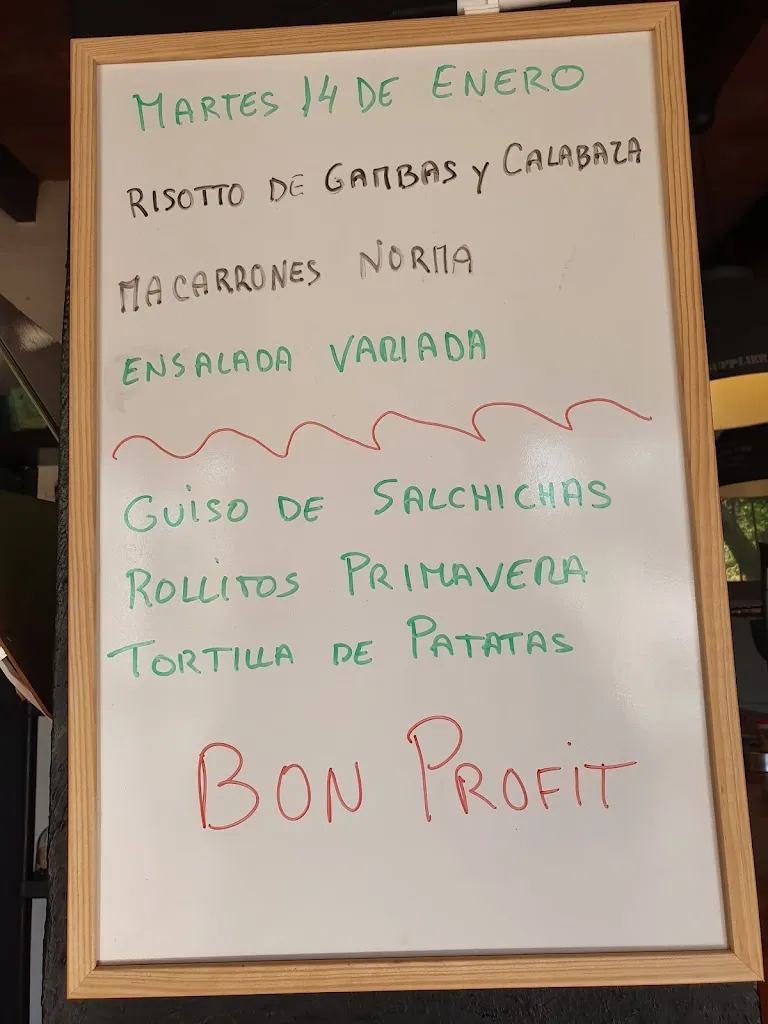 MARTES 14 DE ENERO
RISOTTO DE GAMBAS y CALABAZA
MACARRONES NORMA
ENSALADA VARIADA
GUISO DE SALCHICHAS
ROLLITOS PRIMAVERA
TORTILLA DE PATATAS
BON PROFIT